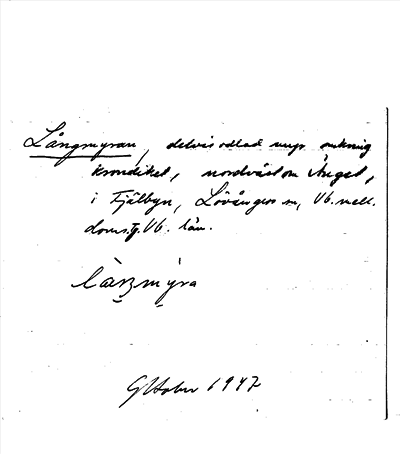 Långmyran, delvis odlad myr omkring
krondiket, nordväst om Ånget,
i Fjälbyn, Lövångers sn, Vb. mell.
doms. Vb. län.
1947